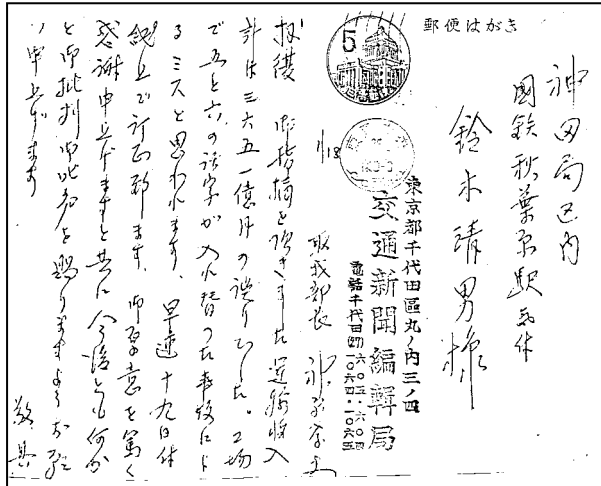 郵便はがき
5
神田局区内
國鉄秋葉原駅気付
鈴木清男様
1/18
東京都千代田區丸ノ内三ノ四
交通新聞編輯局
電話千代田
取材部長
拝復 御指摘を頂きました運輸收入
計は三六五一億円の誤りでした。工場
で五と六の活字が入れ替つた事故によ
るミスと思われます。早速十九日付
紙上で訂正致します。御厚意を篤く
感謝申上げますと共に今後とも何か
と御批判御叱責を賜りますようお願
い申上げます
敬具